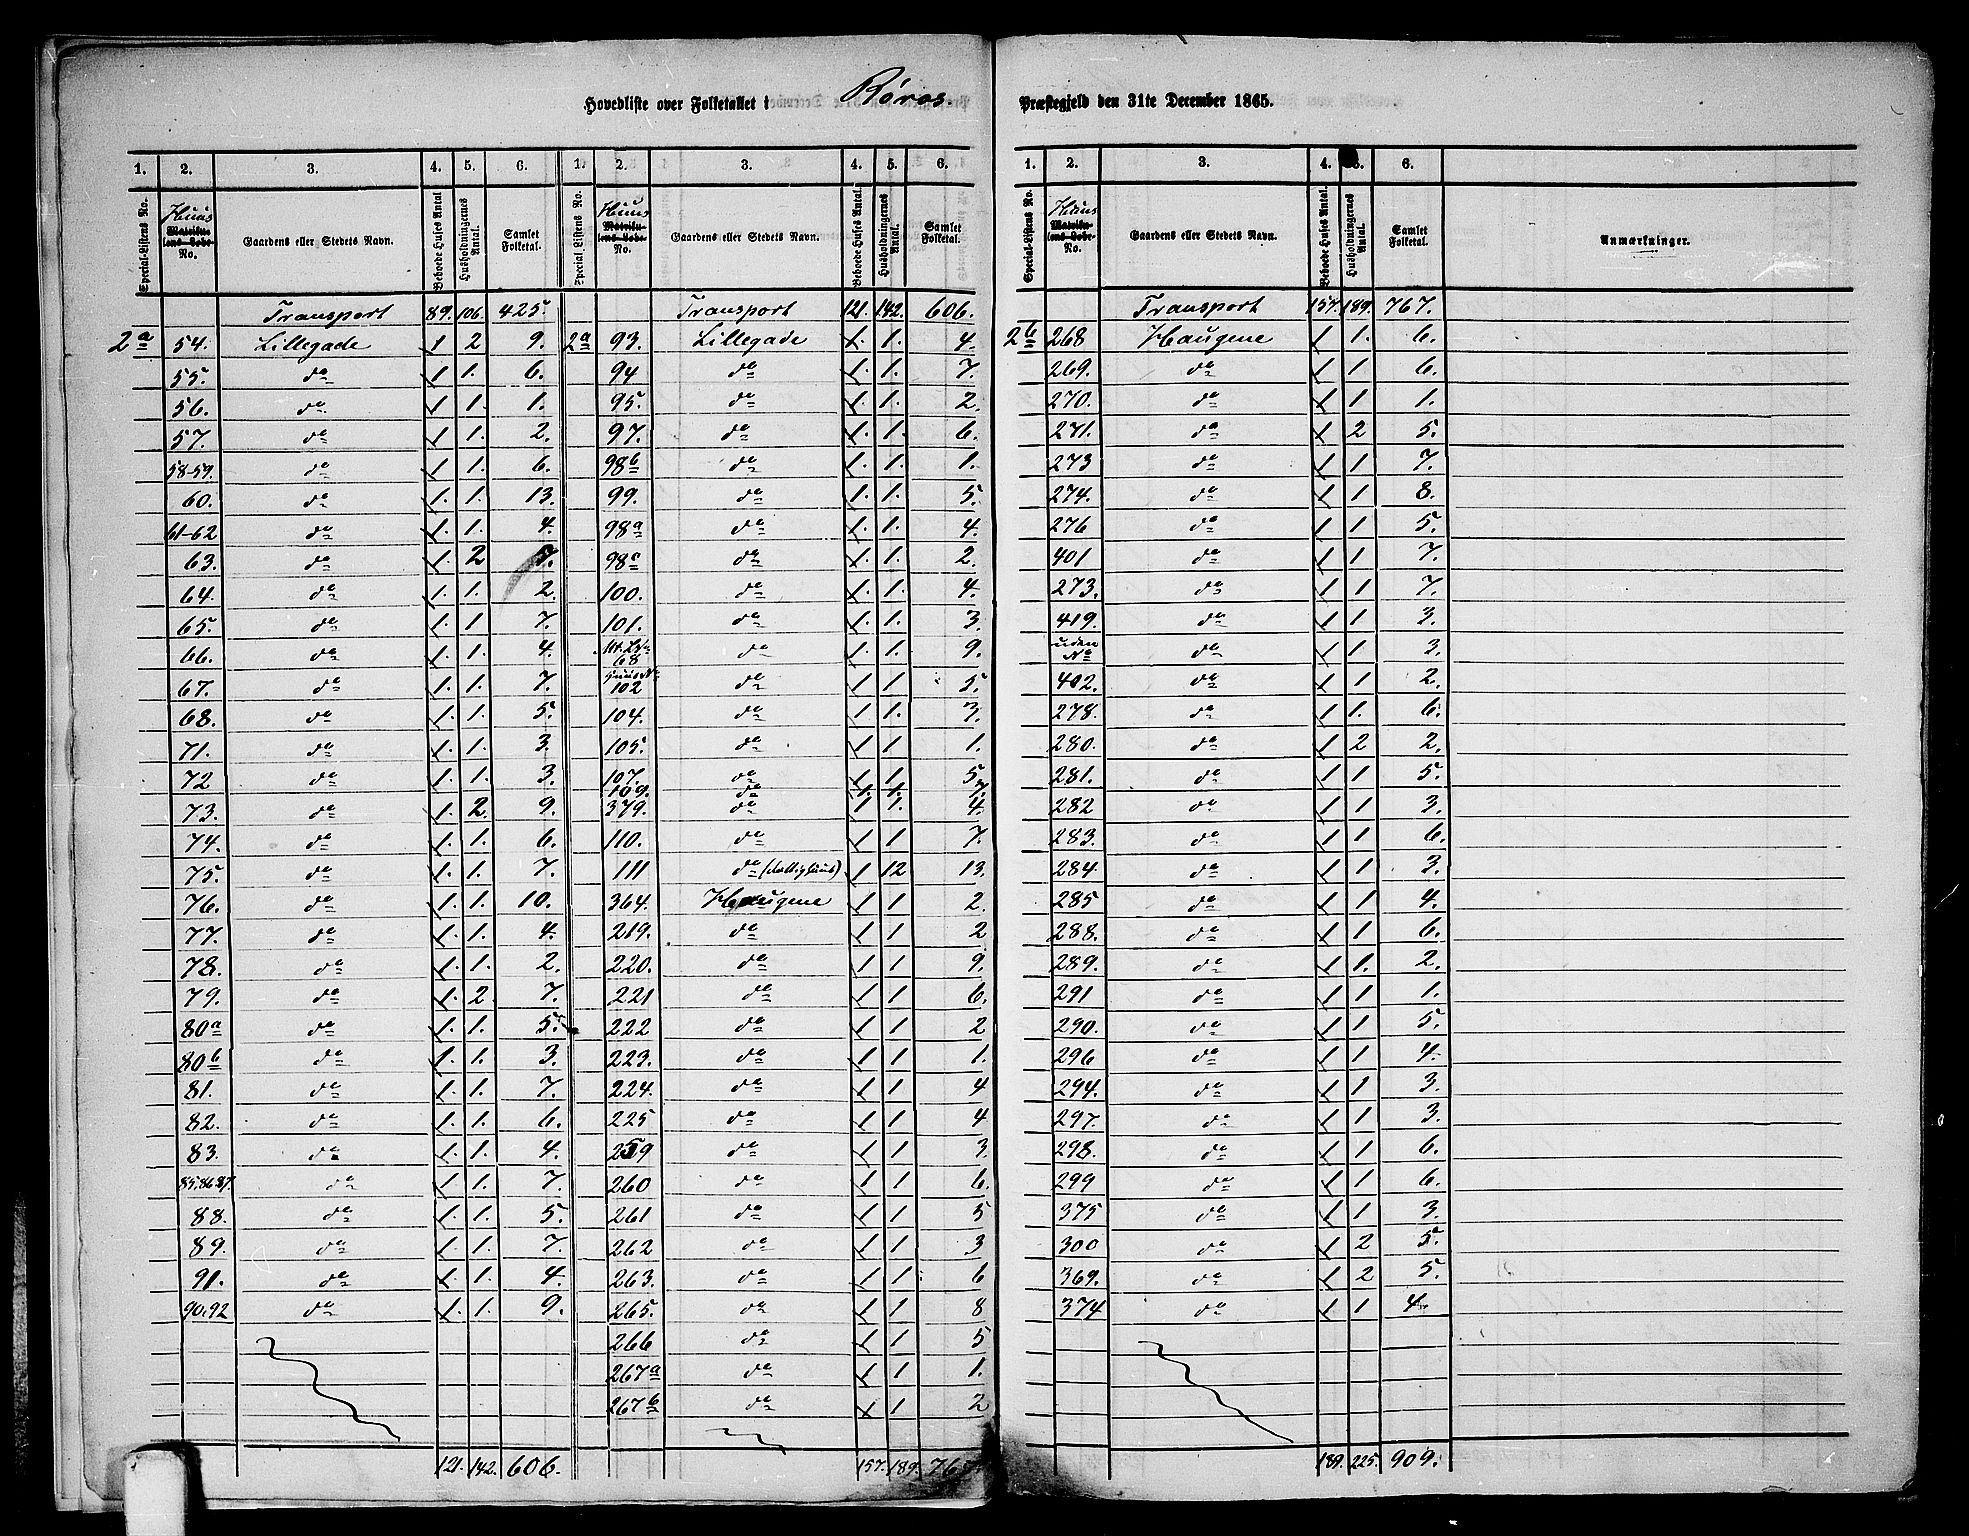 Hovedliste over Folketallet i Røros Præstegjeld den 31te December 1865.
1. 2. 3. 4. 5. 6. 1. 2. 3. 4. 5. 6.
Special-Listens No. Huus Matrikulens Løbe-No. Gaardens eller Stedets Navn. Beboede Huses Antal Husholdningernes Antal. Samlet Folketal. Special-Listens No. Huus Matrikulens Løbe-No. Gaardens eller Stedets Navn. Beboede Huses Antal. Husholdningernes Antal. Samlet Folketal.
Transport 89. 106. 425. Transport 121. 142. 606.
2a 54. Lillegade 1 2 9. 2a 93. Lillegade 1. 1. 4.
55. do 1 1. 6. 94 do 1. 1. 7.
56. do 1 1. 1. 95. do 1. 1. 2.
57. do 1 1. 2. 97. do 1. 1. 6.
58-59. do 1 1. 6. 98b do 1. 1. 1.
60. do 1. 1. 13. 99. do 1. 1. 5.
61-62 do 1. 1. 4. 98a do 1. 1. 4.
63. do 1. 2 5. 98c do 1. 1. 2.
64. do 1. 1. 2. 100. do 1. 1. 4.
65. do 1. 1 7. 101. do 1. 1. 3.
66. do 1. 1. 4. Mt. L No 68 do 1 1. 9.
67. do 1. 1. 7. Huus No 102 do 1 1 5.
68. do 1. 1. 5. 104. do 1 1. 3.
71. do 1. 1. 3. 105. do 1 1 1.
72 do 1. 1. 3. 107. do 1. 1. 5
109. do 1. 1. 7.
73. do 1. 2. 9. 379. do 1 1. 4.
74. do 1. 1. 6. 110. do 1 1 7.
75. do 1. 1. 7. 111 do (Fattighuus) 1 12 13.
76. do 1. 1. 10. 364. Haugene 1 1 2.
77. do 1. 1. 4. 219. do 1 1 2
78. do 1. 1. 2. 220. do 1 1 9.
79. do 1. 2. 7. 221 do 1 1 6.
80a do 1. 1. 5. 222 do 1 1 2
80b do 1. 1. 3. 223. do 1 1 1.
81. do 1. 1. 7. 224. do 1 1 4
82. do 1. 1. 6. 225 do 1 1 4
83. do 1. 1. 4. 259 do 1 1 3.
85.86.87. do 1. 1. 7. 260 do 1 1 6.
88. do 1. 1. 5. 261 do 1 1 5
89. do 1. 1. 7. 262 do 1 1 3
91. do 1. 1. 4. 263. do 1 1 6
90.92 do 1. 1. 9. 265. do 1 1 8
266 do 1 1 5
267a do 1 1 1.
267b do 1 1 2
121. 142. 606. 157. 189. 767.
1. 2. 3. 4. 5. 6.
Special-Listens No. Huus Matrikulens Løbe-No. Gaardens eller Stedets Navn. Beboede Huses Antal. Husholdningernes Antal. Samlet Folketal. Anmærkninger.
Transport 157. 189. 767.
2b 268 Haugene 1 1. 6.
269. do 1 1 6.
270. do 1 1 1.
271. do 1 2 5.
273 do 1 1 7.
274. do 1 1 8.
276 do 1 1 5.
401 do 1 1 7.
273. do 1 1 7.
419. do 1 1 3.
uden No do 1 1 3.
402. do 1 1 2.
278. do 1 1. 6.
280. do 1 2 2.
281. do 1 1 5.
282 do 1 1 3.
283. do 1 1 6.
284. do 1 1 3.
285 do 1 1 4.
288. do 1 1 6.
289. do 1 1. 2.
291 do 1 1 1.
290. do 1 1 5.
296 do 1 1 4.
294. do 1 1 3.
297. do 1 1 3.
298. do 1 1 6.
299 do 1 1 6.
375 do 1 1 3.
300 do 1 2 5.
369. do 1 2 5.
374 do 1 1 4
189. 225. 909.